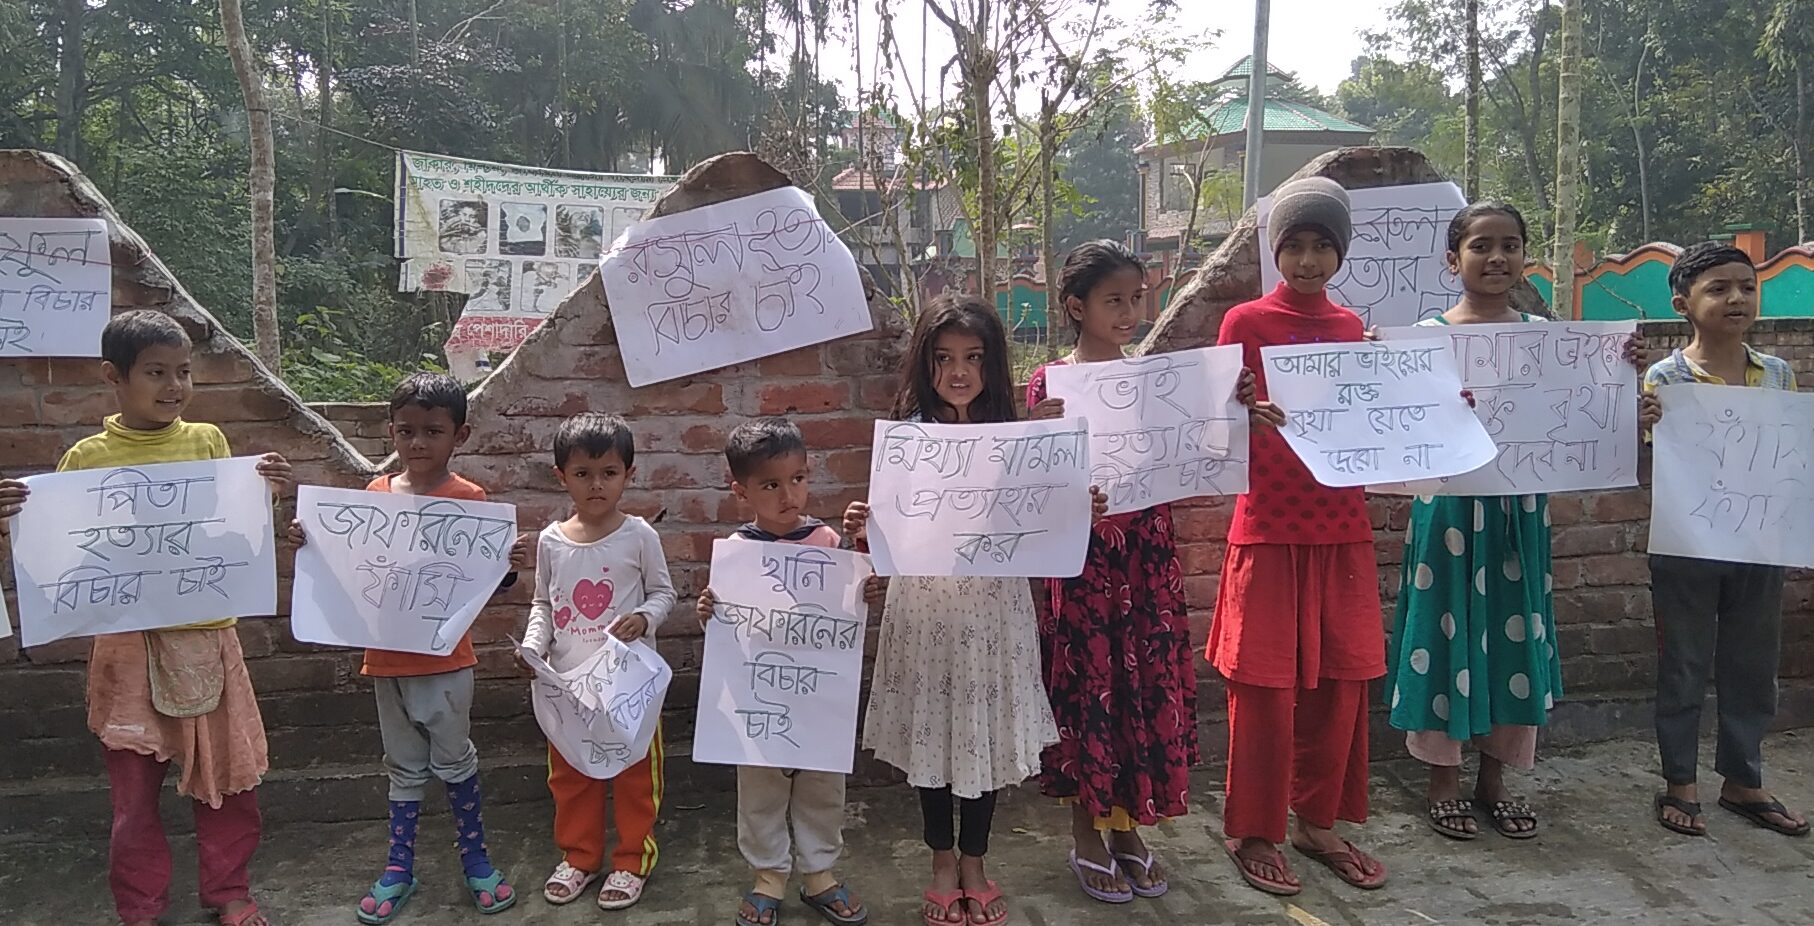 আহত ও শহীদদের আর্থিক সাহায্যের জন্য
পেশাদারি
বিচার
রসুল হত্যার
বিচার চাই
হত্যার
পিতা
হত্যার
বিচার চাই
জাফরিনের
ফাঁসি
বিচার
চাই
খুনি
জাফরিনের
বিচার
চাই
মিথ্যা মামলা
প্রত্যাহার
কর
ভাই
হত্যার
বিচার চাই
আমার ভাইয়ের
রক্ত
বৃথা যেতে
দেবো না
বৃথা
দেবনা
ফাঁসি
ফাঁসি